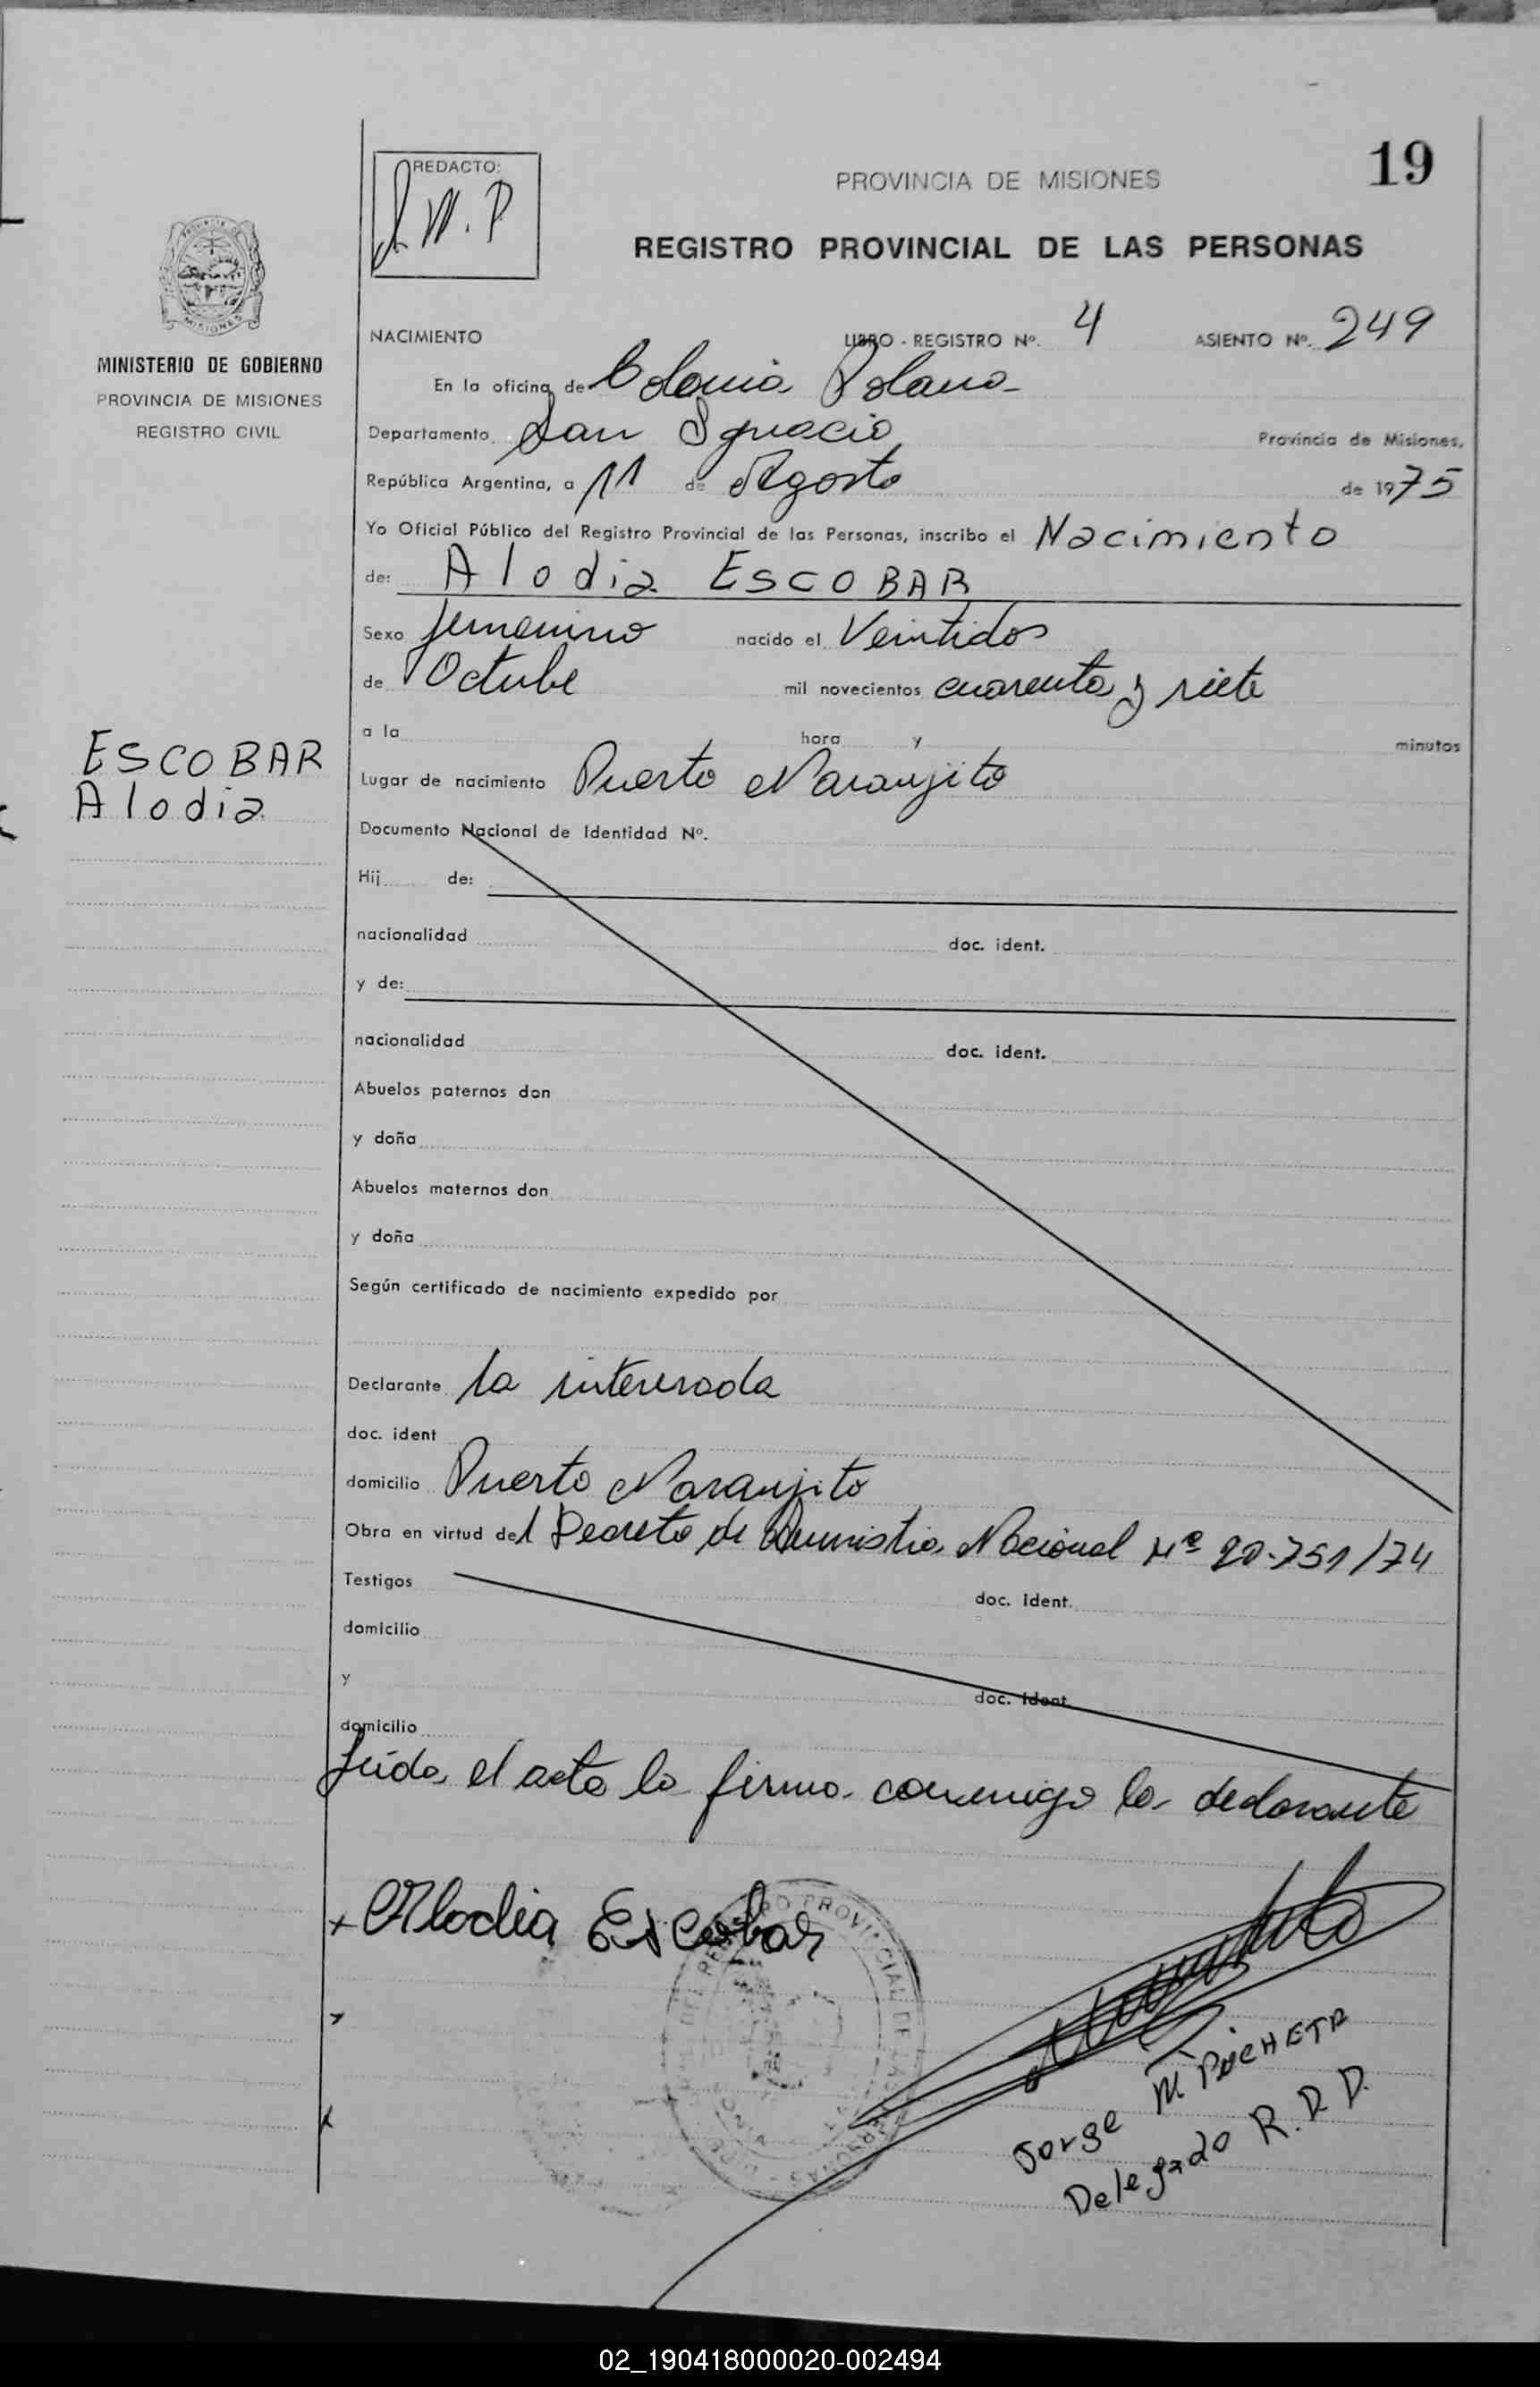 19
REDACTO:
J.M.P
PROVINCIA DE MISIONES
REGISTRO PROVINCIAL DE LAS PERSONAS
MISIONES
MINISTERIO DE GOBIERNO
PROVINCIA DE MISIONES
REGISTRO CIVIL
NACIMIENTO LIBRO - REGISTRO Nº. 4 ASIENTO Nº. 249
En la oficina de Colonia Polana
Departamento San Ignacio Provincia de Misiones,
República Argentina, a 11 de Agosto de 1975
Yo Oficial Público del Registro Provincial de las Personas, inscribo el Nacimiento
de: Alodia ESCOBAR
Sexo femenino nacido el Veintidos
de Octubre mil novecientos cuarenta y siete
a la hora y minutos
ESCOBAR
Alodia
Lugar de nacimiento Puerto Naranjito
Documento Nacional de Identidad Nº.
Hij de:
nacionalidad doc. ident.
y de:
nacionalidad doc. ident.
Abuelos paternos don
y doña
Abuelos maternos don
y doña
Según certificado de nacimiento expedido por
Declarante la interesada
doc. ident
domicilio Puerto Naranjito
Obra en virtud del Decreto de Amnistia Nacional Nº 20.751/74
Testigos doc. ident.
domicilio
y doc. ident.
domicilio
leida el acta la firma conmigo la declarante
x Alodia Escobar
REGISTRO PROVINCIAL DE LAS PERSONAS
Jorge M. POCHETA
Delegado R.P.P.
02_190418000020-002494